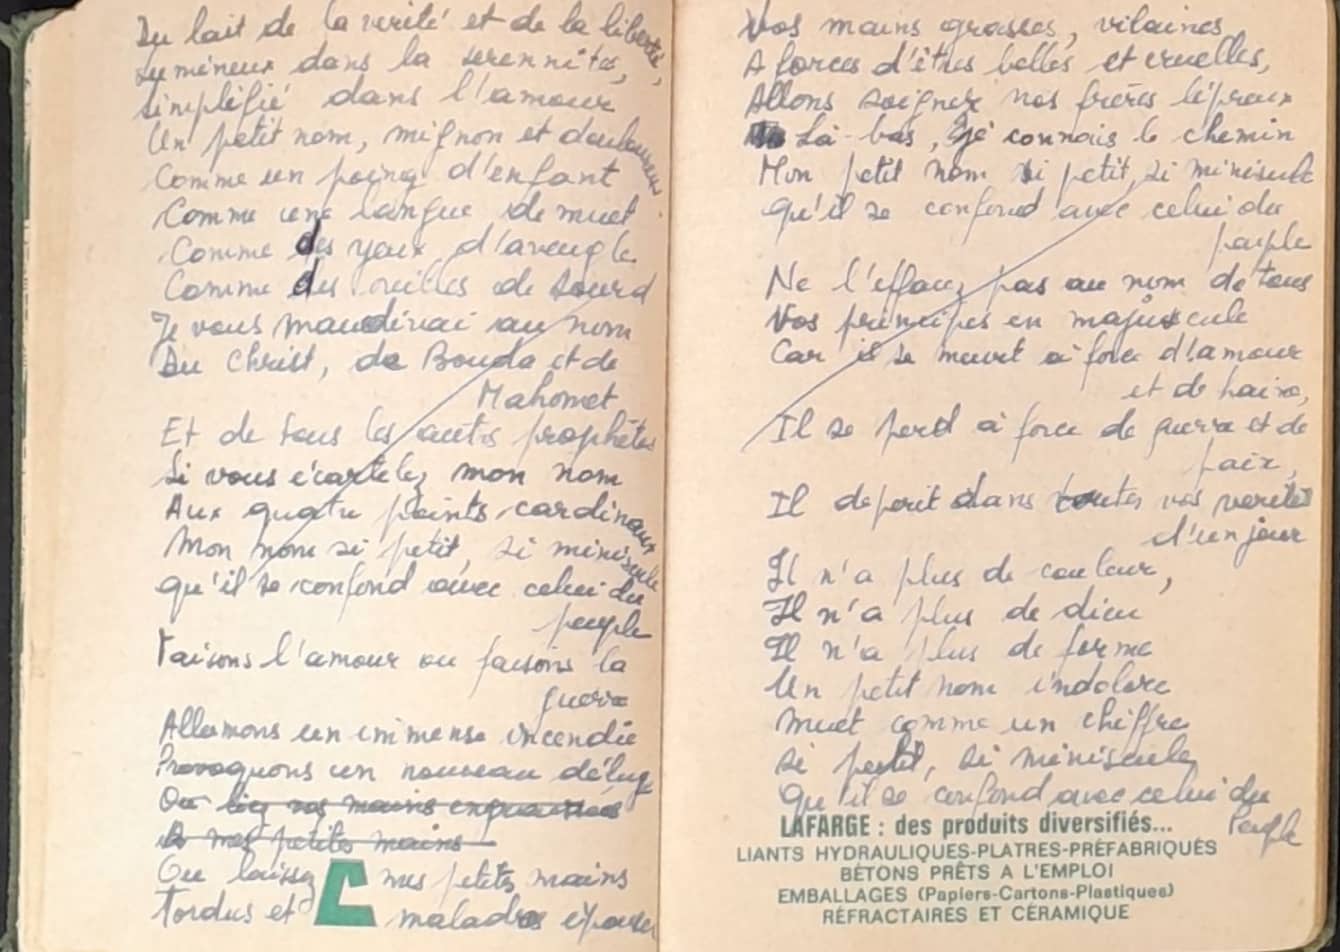 Du lait de la verité et de la liberté,
Lumineux dans la serennité,
Simplifié dans l'amour
Un petit nom, mignon et douloureux
Comme un poing d'enfant
Comme une langue de muet
Comme des yeux d'aveugle
Comme des oreilles de sourd
Je vous maudirai au nom
Du Christ, de Bouda et de
Mahomet
Et de tous les autres prophètes
Si vous écartelez mon nom
Aux quatre points cardinaux
Mon nom si petit, si miniscule
qu'il se confond avec celui du
peuple
Faisons l'amour ou faisons la
guerre
Allumons un immense incendie
Provoquons un nouveau déluge
Ou liez vos mains
à mes petites mains
Ou laissez mes petites mains
Tordus et maladros épouser
Vos mains grasses, vilaines
A forces d'êtres belles et cruelles,
Allons soigner nos frères lépreux
Là-bas, je connais le chemin
Mon petit nom si petit, si miniscule
qu'il se confond avec celui du
peuple
Ne l'effacez pas au nom de tous
Vos principes en majuscule
Car il se meurt à force d'amour
et de haine,
Il se perd à force de guerre et de
paix,
Il deperit dans toutes vos verités
d'un jour
Il n'a plus de couleur,
Il n'a plus de dieu
Il n'a plus de forme
Un petit nom indolore
Muet comme un chiffre
si petit, si miniscule
Qu'il se confond avec celui du
Peuple
LAFARGE : des produits diversifiés...
LIANTS HYDRAULIQUES-PLATRES-PRÉFABRIQUÉS
BÉTONS PRÊTS A L'EMPLOI
EMBALLAGES (Papiers-Cartons-Plastiques)
RÉFRACTAIRES ET CÉRAMIQUE